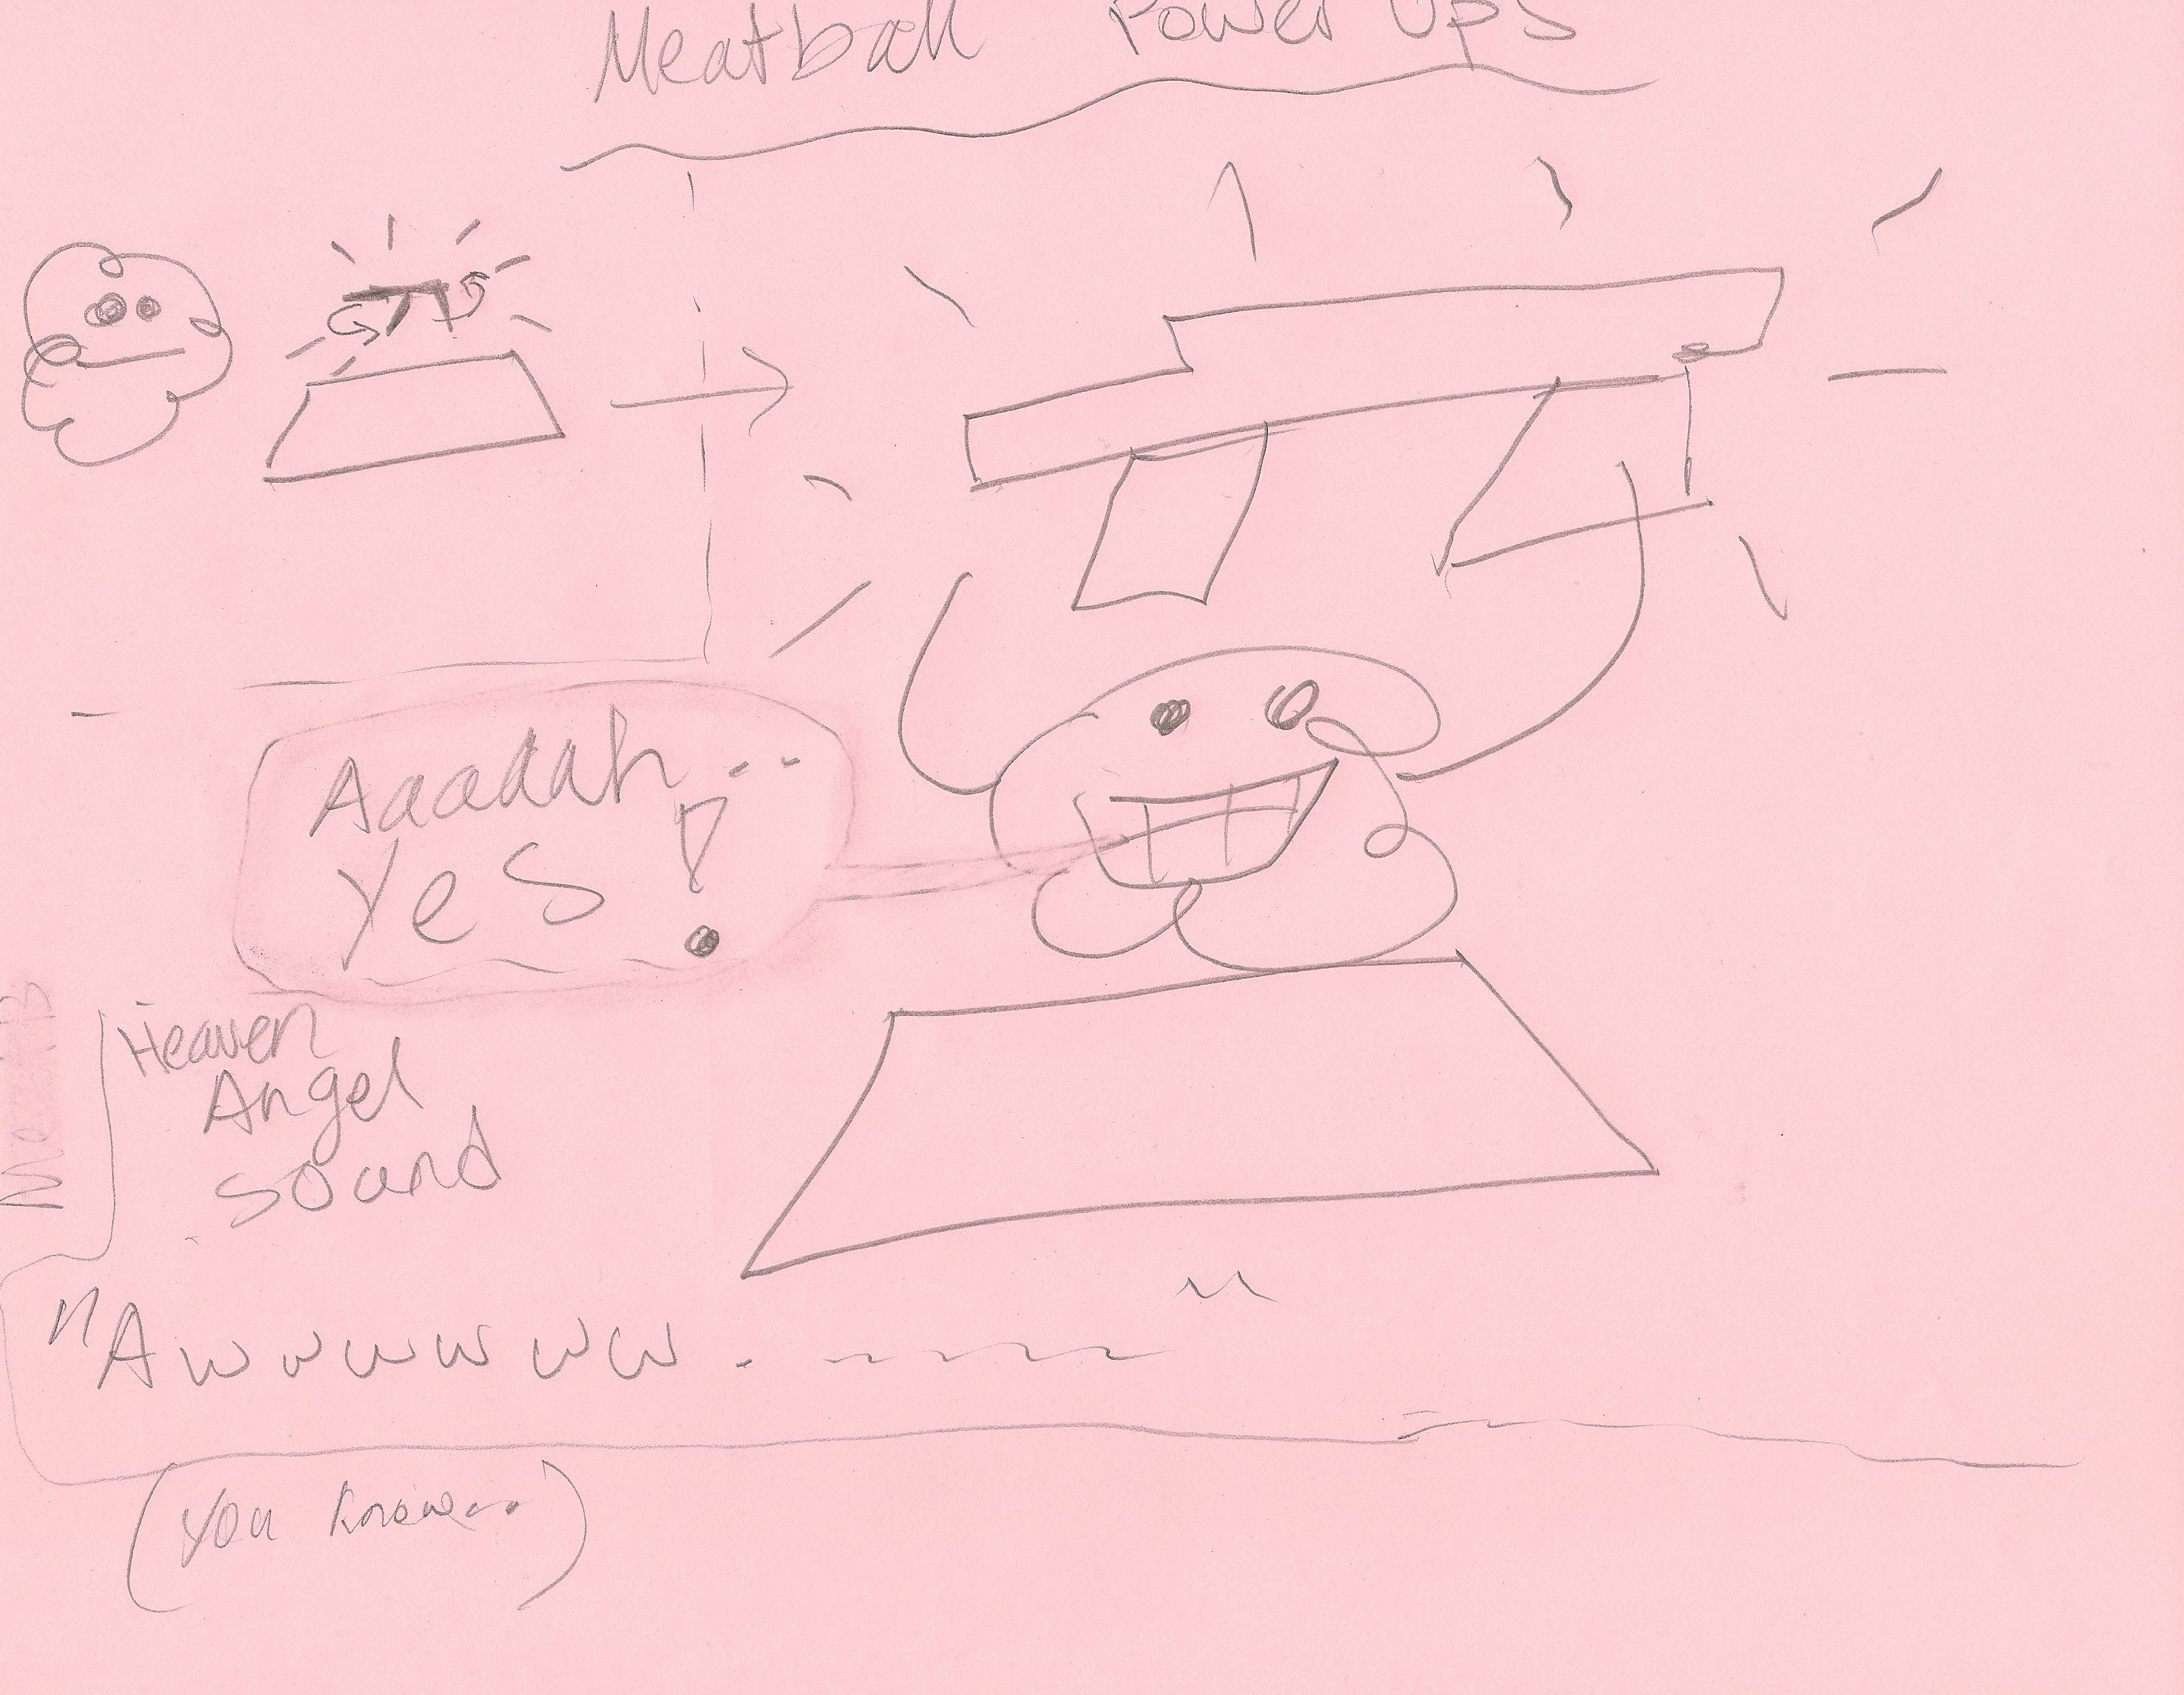 Meatball Power Ups
Aaaaah..
Yes!
Heaven
Angel
sound
"Awwwwww. ----"
(you know..)